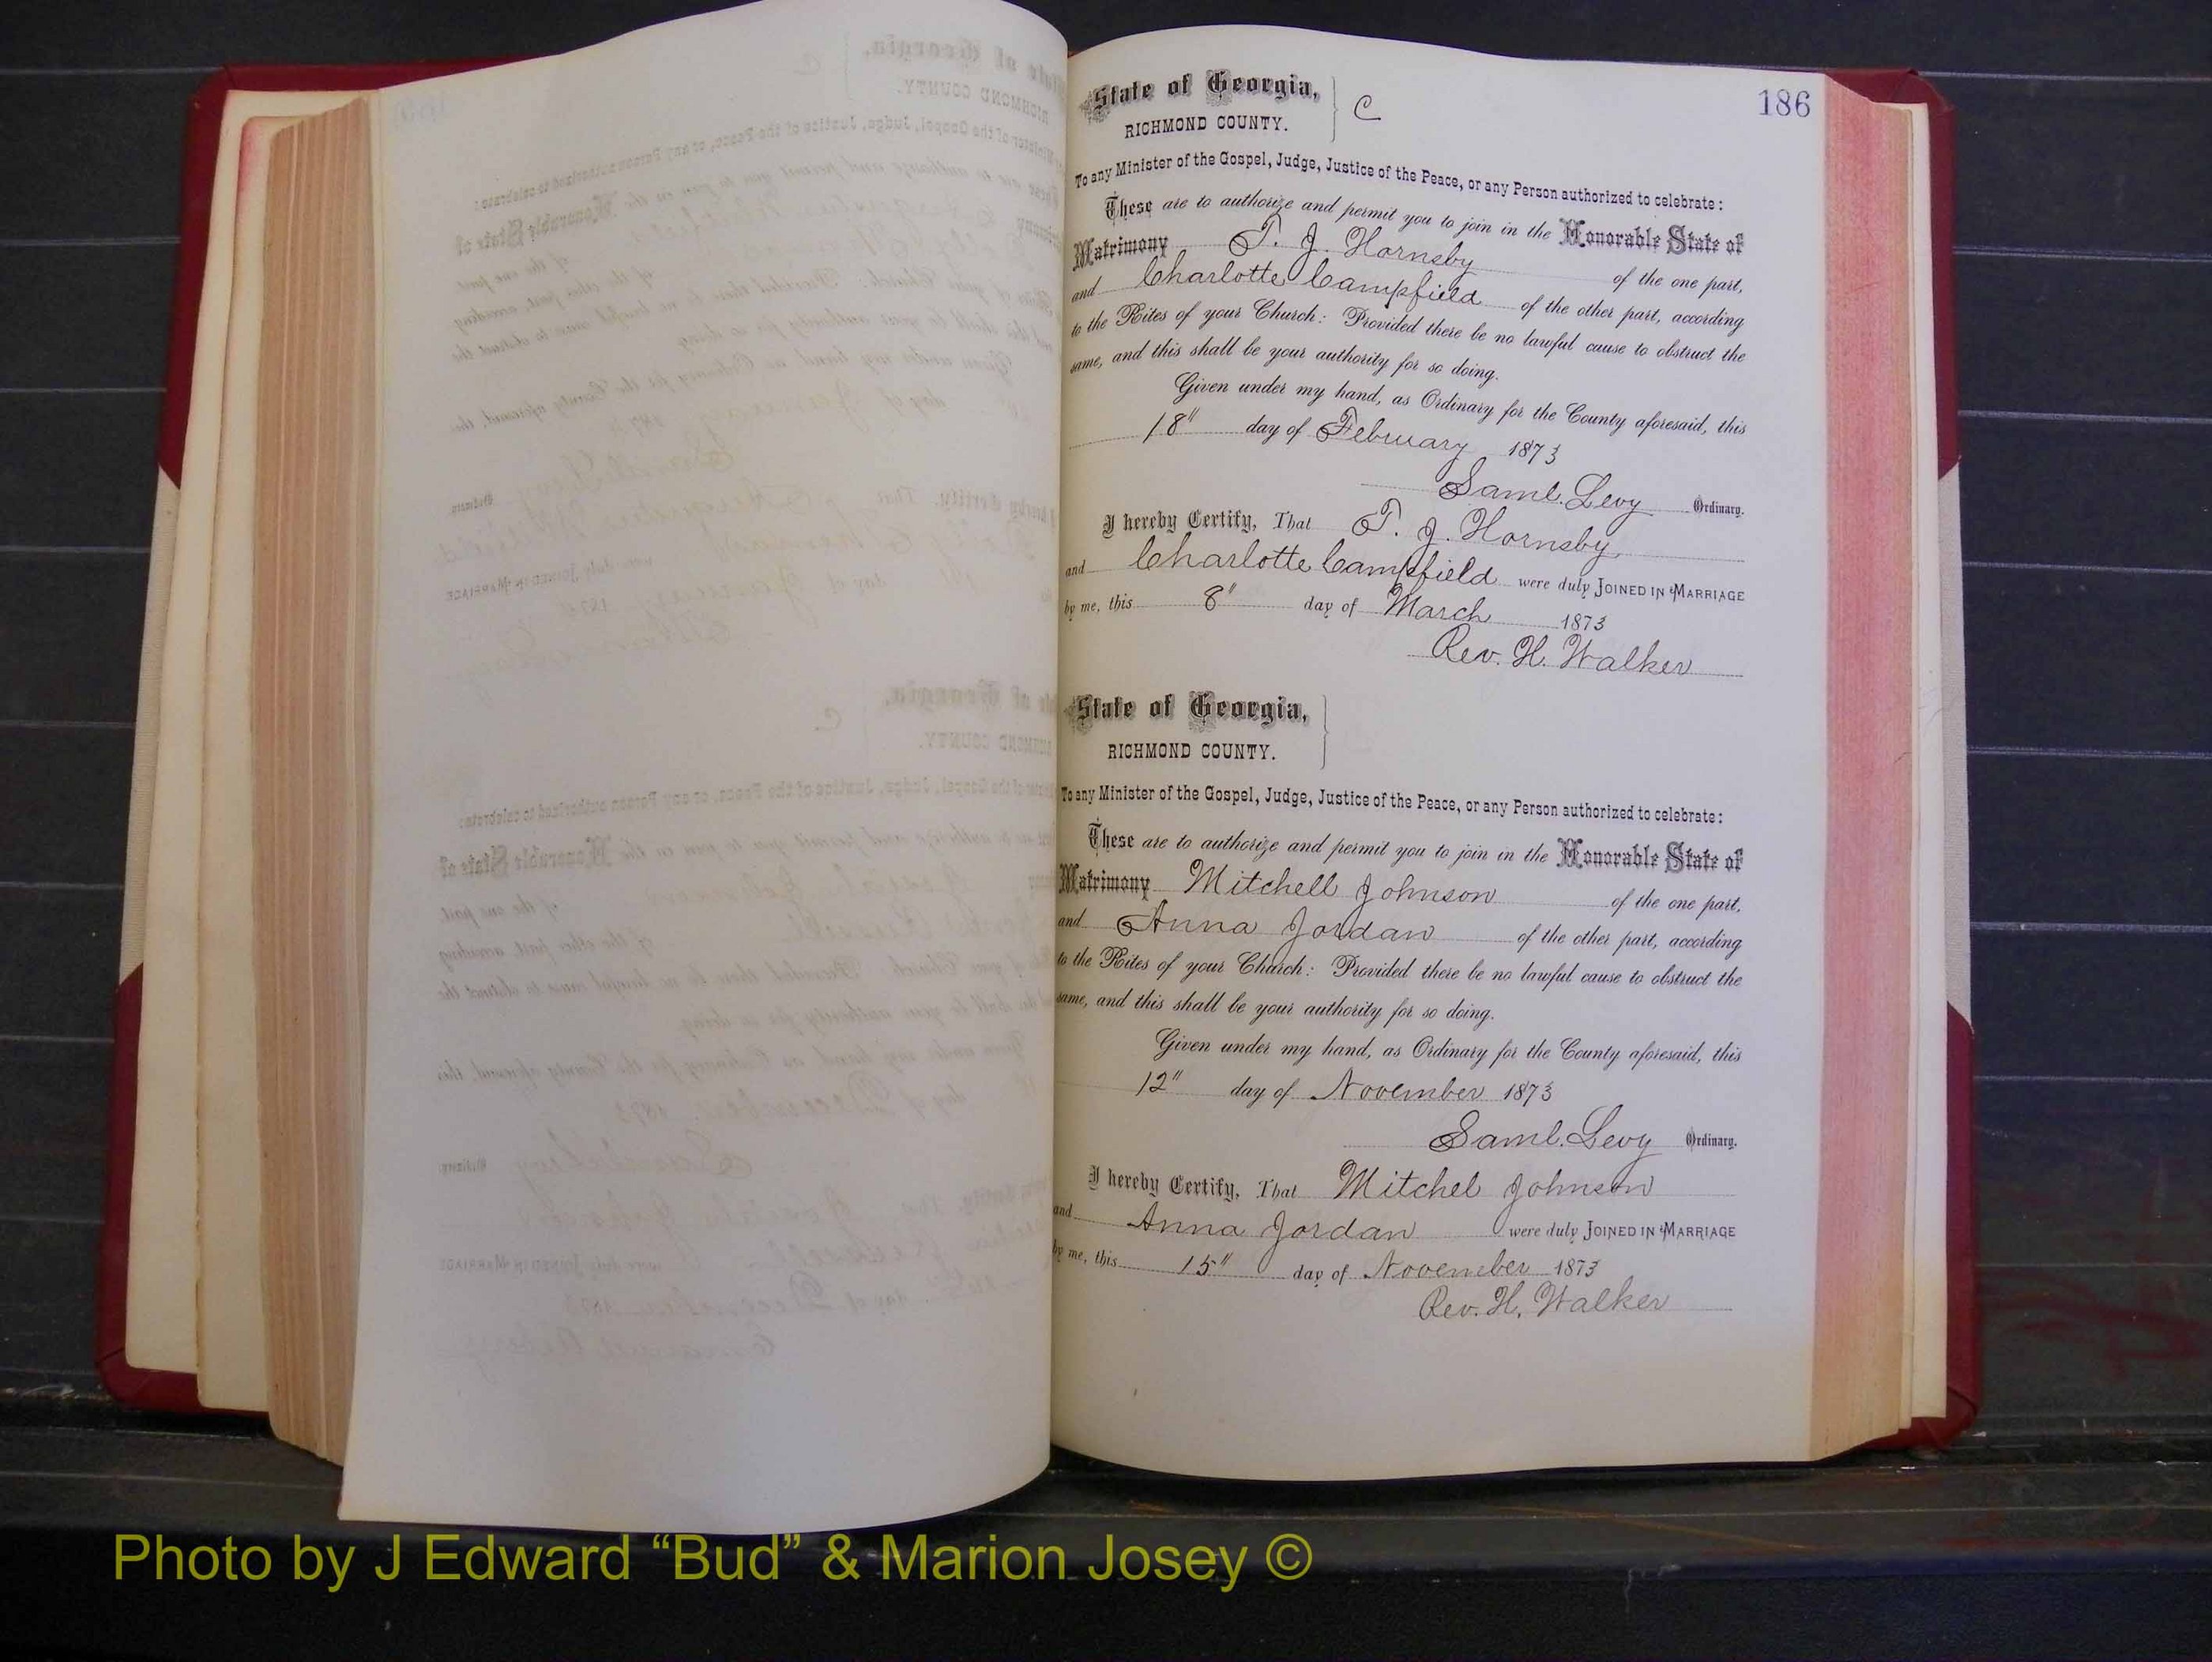 186
State of Georgia, C
RICHMOND COUNTY.
To any Minister of the Gospel, Judge, Justice of the Peace, or any Person authorized to celebrate:
These are to authorize and permit you to join in the Honorable State of
Matrimony T. J. Hornsby of the one part,
and Charlotte Campfield of the other part, according
to the Rites of your Church: Provided there be no lawful cause to obstruct the
same, and this shall be your authority for so doing.
Given under my hand, as Ordinary for the County aforesaid, this
18" day of February 1873
Saml. Levy Ordinary.
I hereby Certify, That T. J. Hornsby
and Charlotte Campfield were duly JOINED IN MARRIAGE
by me, this 8" day of March 1873
Rev. H. Walker
State of Georgia,
RICHMOND COUNTY.
To any Minister of the Gospel, Judge, Justice of the Peace, or any Person authorized to celebrate:
These are to authorize and permit you to join in the Honorable State of
Matrimony Mitchell Johnson of the one part,
and Anna Jordan of the other part, according
to the Rites of your Church: Provided there be no lawful cause to obstruct the
same, and this shall be your authority for so doing.
Given under my hand, as Ordinary for the County aforesaid, this
12" day of November 1873
Saml. Levy Ordinary.
I hereby Certify, That Mitchel Johnson
and Anna Jordan were duly JOINED IN MARRIAGE
by me, this 15" day of November 1873
Rev. H. Walker
Photo by J Edward “Bud” & Marion Josey ©